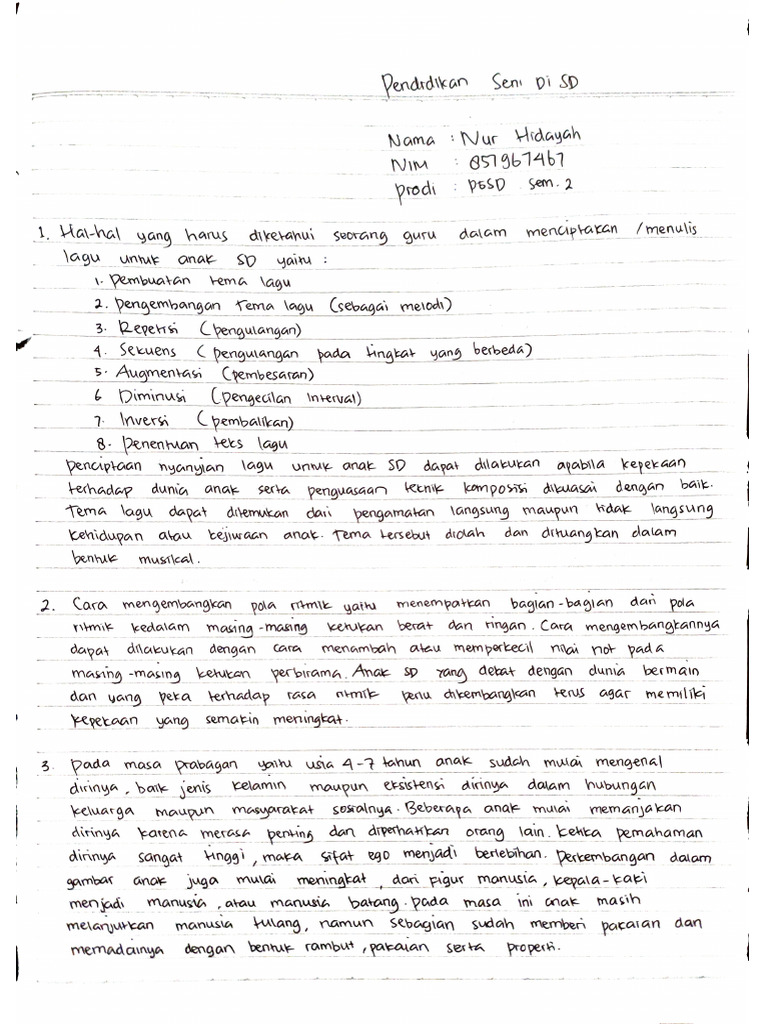 Pendidikan Seni Di SD
Nama : Nur Hidayah
NIM : 857967467
Prodi : PGSD sem. 2
1. Hal-hal yang harus diketahui seorang guru dalam menciptakan /menulis
lagu untuk anak SD yaitu :
1. Pembuatan tema lagu
2. Pengembangan Tema lagu (sebagai melodi)
3. Repetisi (pengulangan)
4. Sekuens (pengulangan pada tingkat yang berbeda)
5. Augmentasi (pembesaran)
6 Diminusi (pengecilan Interval)
7. Inversi (pembalikan)
8. Penentuan teks lagu
Penciptaan nyanyian lagu untuk anak SD dapat dilakukan apabila kepekaan
terhadap dunia anak serta penguasaan teknik komposisi dikuasai dengan baik.
Tema lagu dapat ditemukan dari pengamatan langsung maupun tidak langsung
kehidupan atau kejiwaan anak. Tema tersebut diolah dan dituangkan dalam
bentuk musikal.
2. Cara mengembangkan pola ritmik yaitu menempatkan bagian-bagian dari pola
ritmik kedalam masing-masing ketukan berat dan ringan. Cara mengembangkannya
dapat dilakukan dengan cara menambah atau memperkecil nilai not pada
masing-masing ketukan perbirama. Anak SD yang dekat dengan dunia bermain
dan yang peka terhadap rasa ritmik perlu dikembangkan terus agar memiliki
kepekaan yang semakin meningkat.
3. Pada masa prabagan yaitu usia 4-7 tahun anak sudah mulai mengenal
dirinya, baik jenis kelamin maupun eksistensi dirinya dalam hubungan
keluarga maupun masyarakat sosialnya. Beberapa anak mulai memanjakan
dirinya karena merasa penting dan diperhatikan orang lain. Ketika pemahaman
dirinya sangat tinggi, maka sifat ego menjadi berlebihan. Perkembangan dalam
gambar anak juga mulai meningkat, dari figur manusia, kepala-kaki
menjadi manusia, atau manusia batang. Pada masa ini anak masih
melanjutkan manusia tulang, namun sebagian sudah memberi pakaian dan
memadainya dengan bentuk rambut, pakaian serta properti.